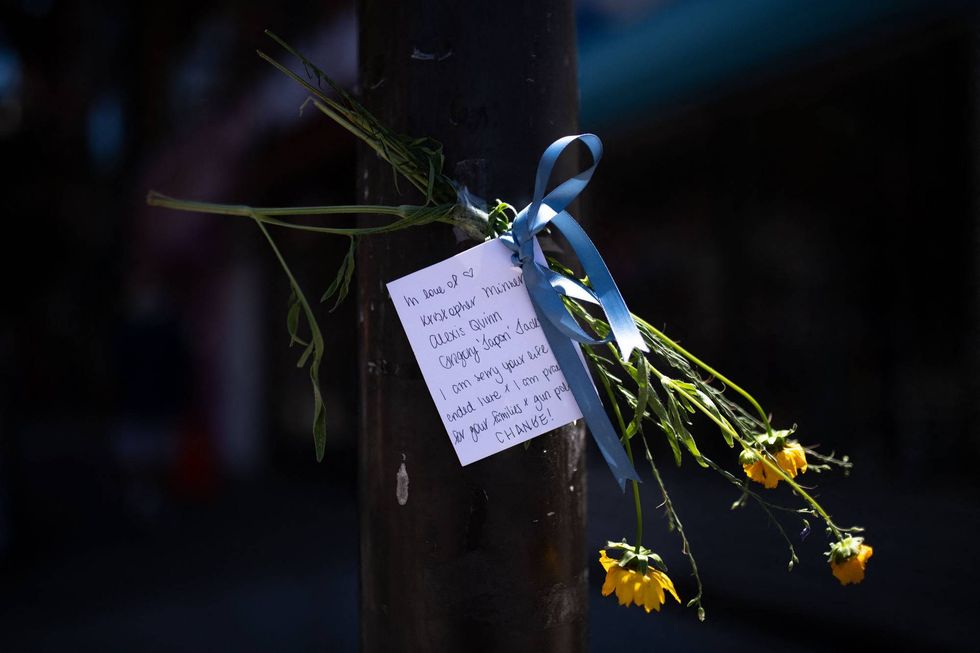 In love of ♡
Kristopher Minner
Alexis Quinn
Gregory "Japan" Jack
I am sorry your life
ended here & I am pra
for your families & gun pol
CHANGE!